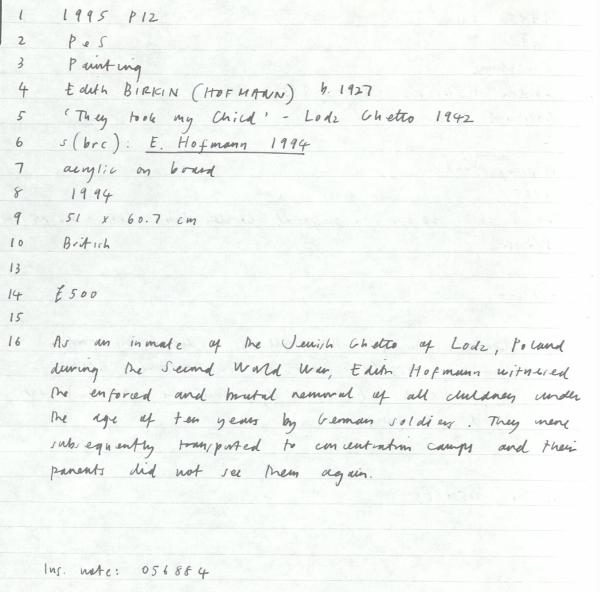 1 1995 P12
2 P & S
3 Painting
4 Edith BIRKIN (HOFMANN) b. 1927
5 'They took my Child' - Lodz Ghetto 1942
6 s(brc): E. Hofmann 1994
7 acrylic on board
8 1994
9 51 x 60.7 cm
10 British
13
14 £500
15
16 As an inmate of the Jewish Ghetto of Lodz, Poland
during the Second World War, Edith Hofmann witnessed
the enforced and brutal removal of all children under
the age of ten years by German soldiers. They were
subsequently transported to concentration camps and their
parents did not see them again.
Ins. note: 056884